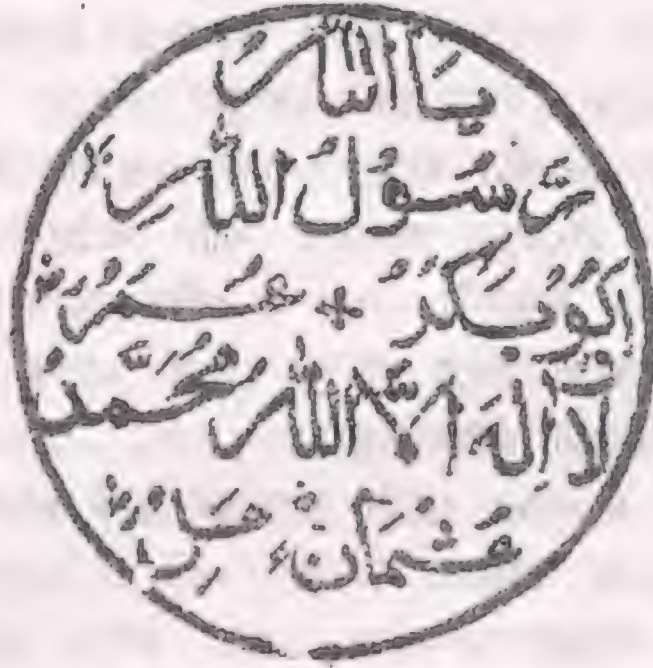 يَا اَللّٰهُ
رَّسُوْلُ اللّٰهِ
اَبُوْبَكَرْ + عُمَرُ
لَآ اِلٰهَ اِلَّا اللّٰهُ مُحَمَّدٌ
عُثْمَانُ عَلِىٌّ